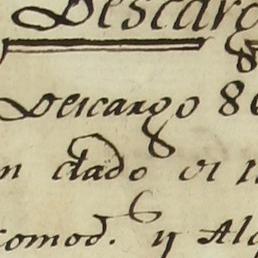 Descarg
Descargo 8
n dado
comod. y Alg